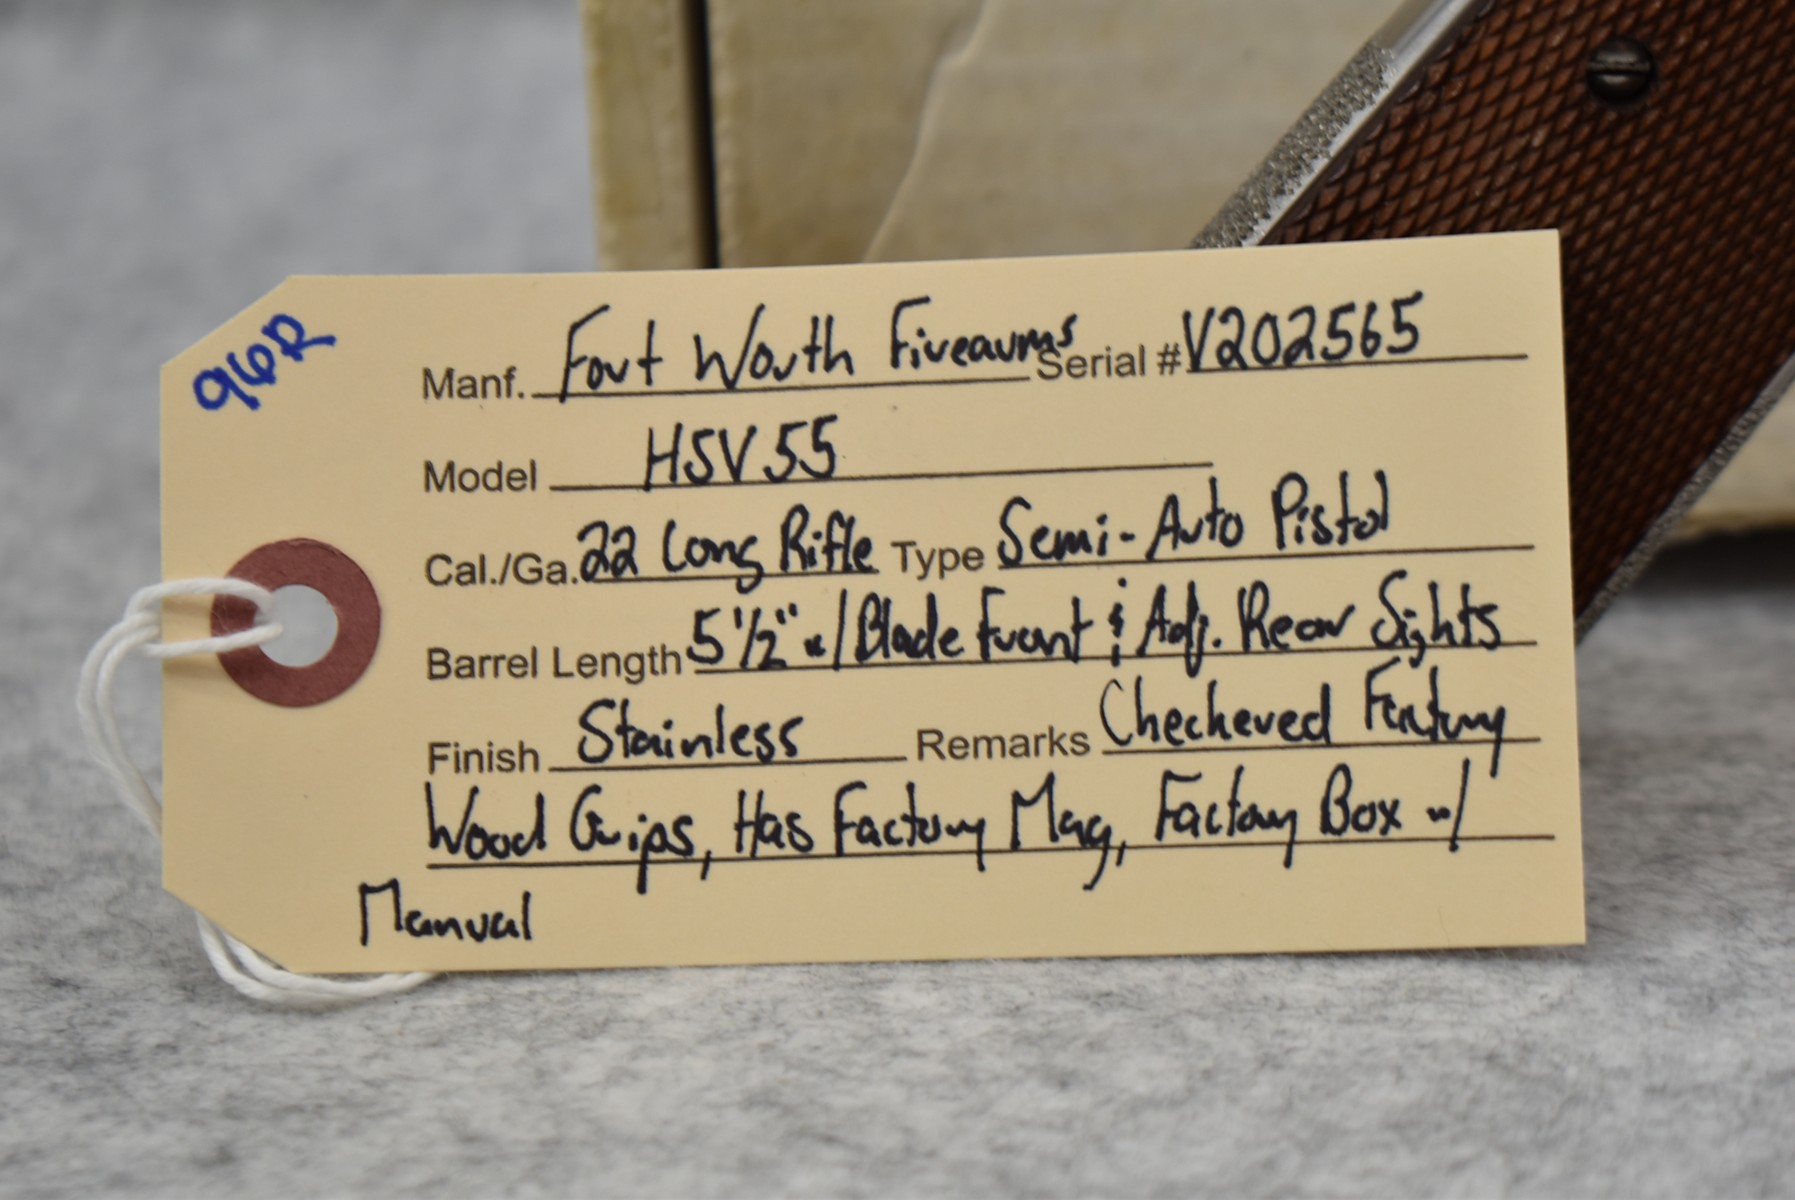 96R
Manf. Fort Worth Firearms Serial # V202565
Model HSV55
Cal./Ga. 22 Long Rifle Type Semi-Auto Pistol
Barrel Length 5 1/2" w/ Blade Front & Adj. Rear Sights
Finish Stainless Remarks Checkered Factory
Wood Grips, Has Factory Mag, Factory Box w/
Manual